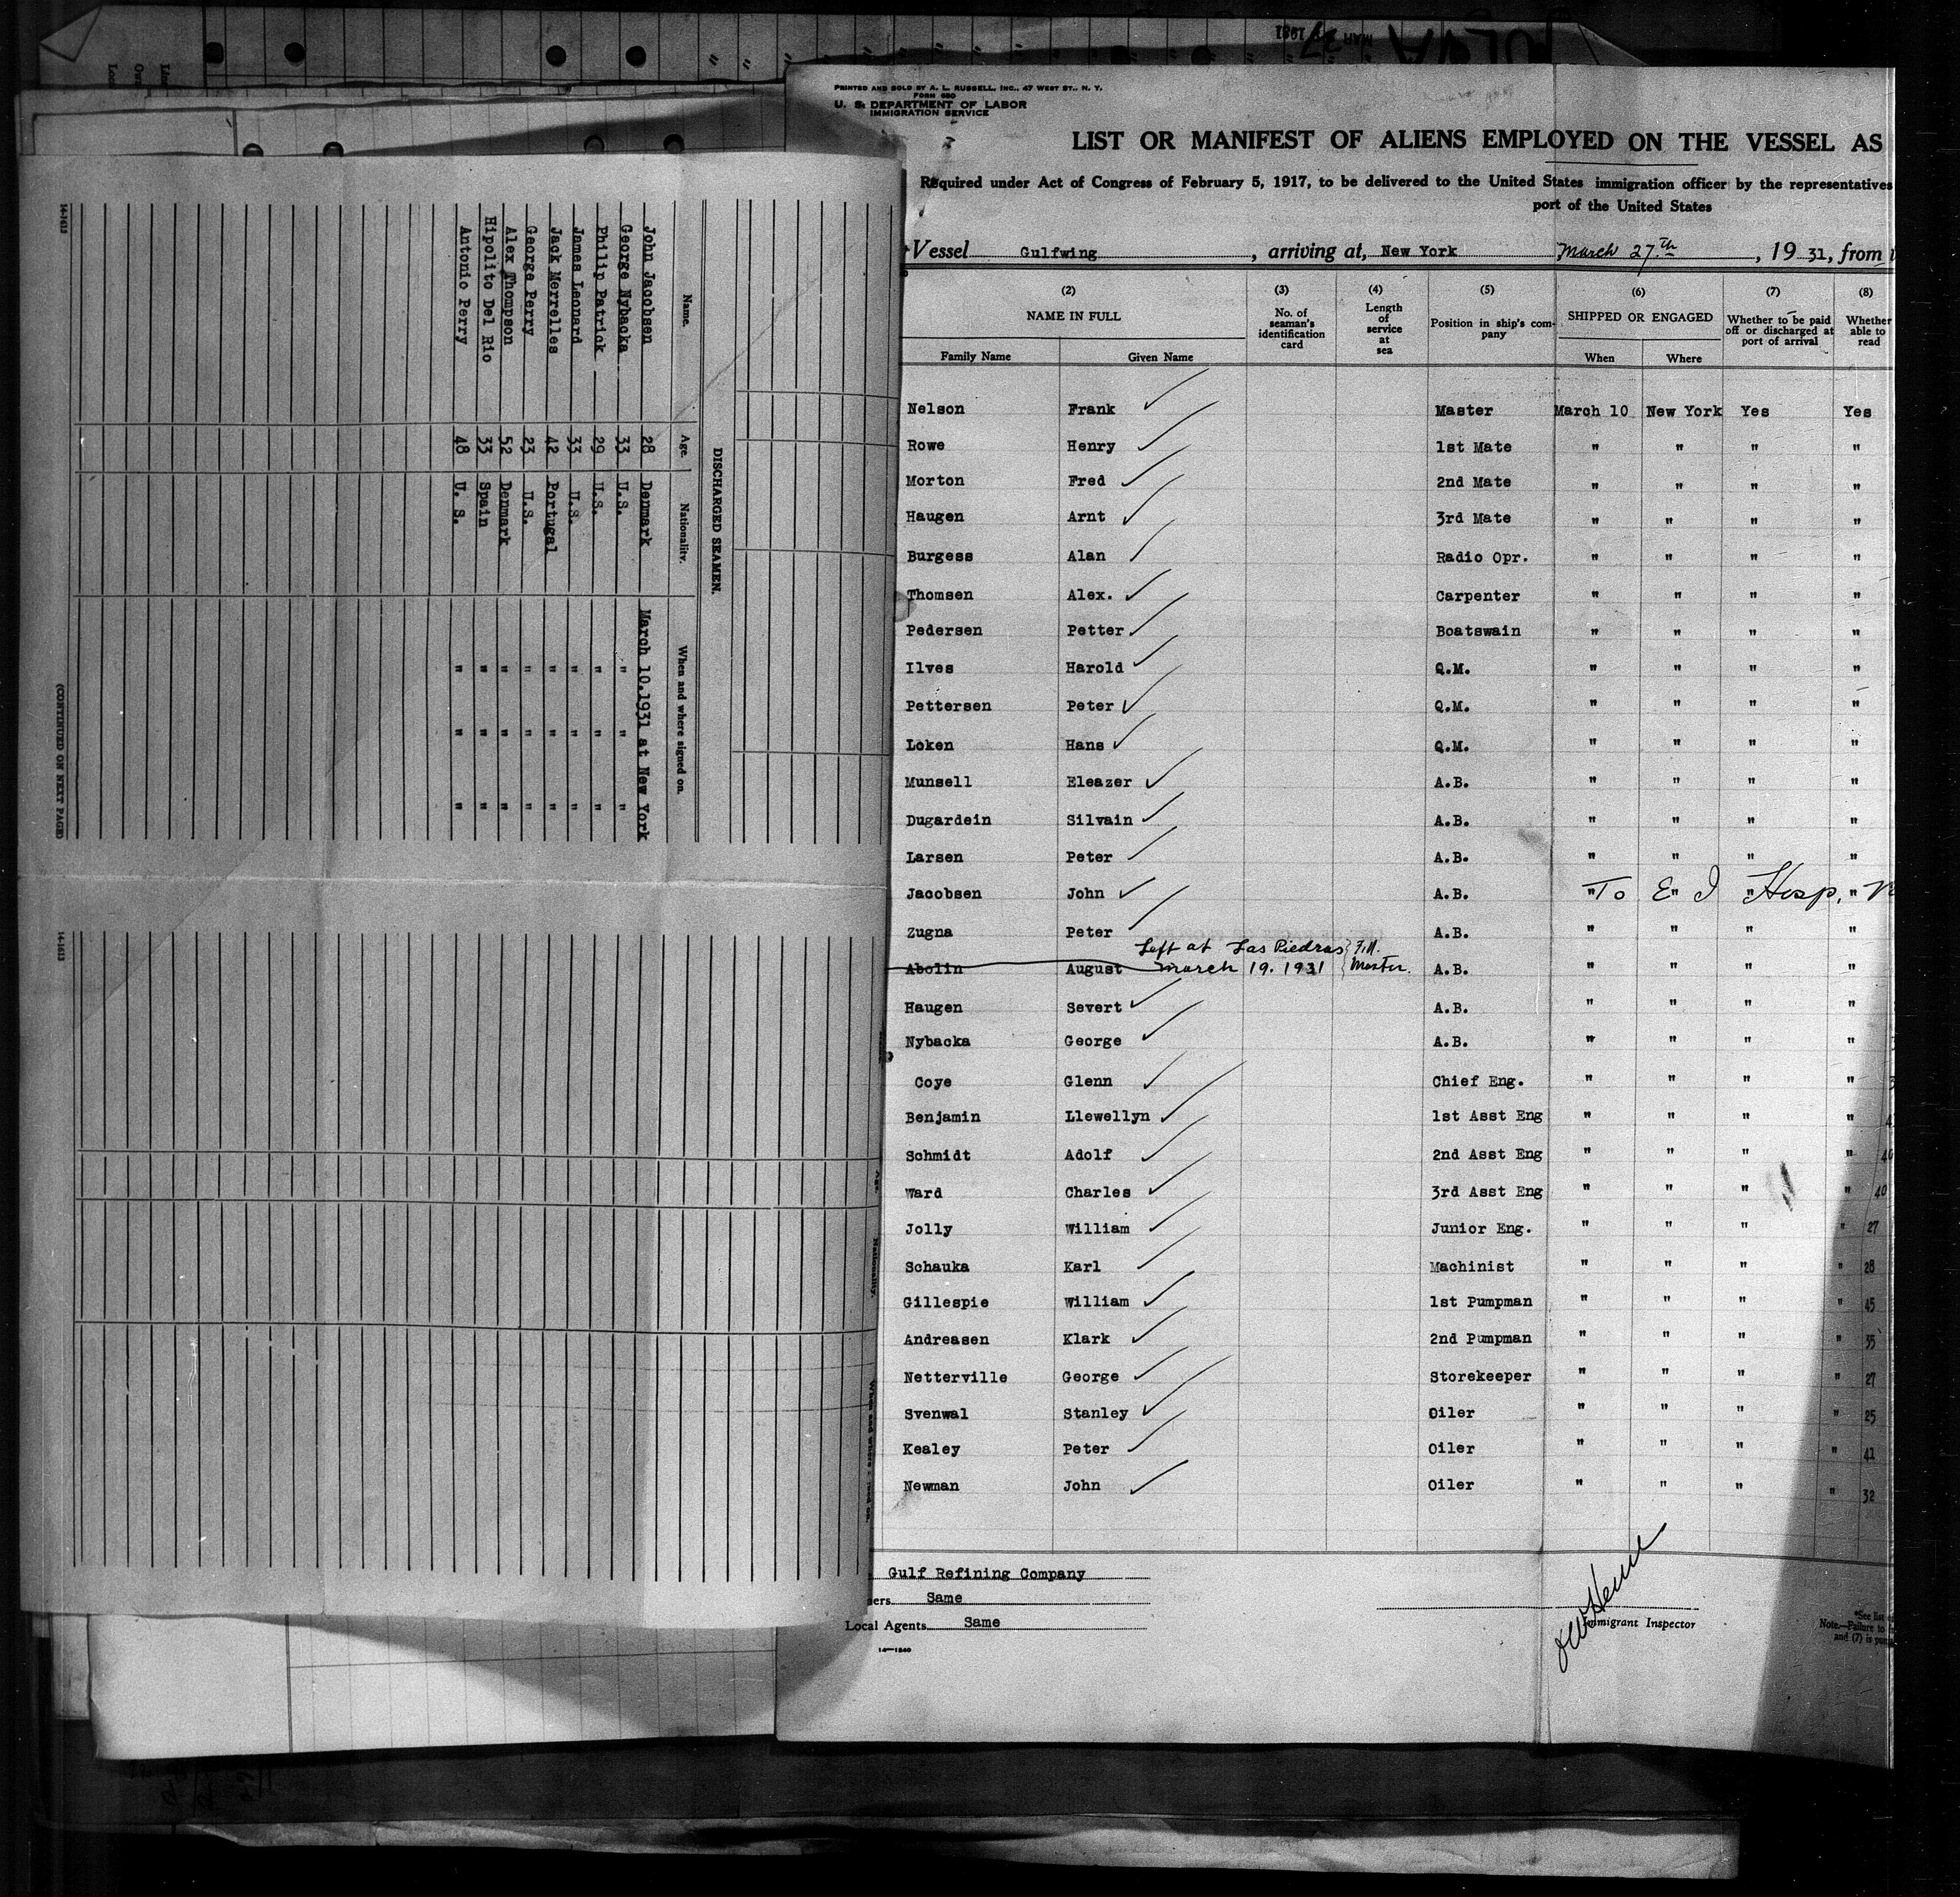 MAR 27 1931
PRINTED AND SOLD BY A. L. RUSSELL, INC., 47 WEST ST., N. Y.
FORM 680
U. S. DEPARTMENT OF LABOR
IMMIGRATION SERVICE
LIST OR MANIFEST OF ALIENS EMPLOYED ON THE VESSEL AS
Required under Act of Congress of February 5, 1917, to be delivered to the United States immigration officer by the representatives
port of the United States
Vessel Gulfwing, arriving at, New York March 27th, 19 31, from
(2) (3) (4) (5) (6) (7) (8)
NAME IN FULL No. of seaman's identification card Length of service at sea Position in ship's company SHIPPED OR ENGAGED Whether to be paid off or discharged at port of arrival Whether able to read
Family Name Given Name When Where
Nelson Frank Master March 10 New York Yes Yes
Rowe Henry 1st Mate " " " "
Morton Fred 2nd Mate " " " "
Haugen Arnt 3rd Mate " " " "
Burgess Alan Radio Opr. " " " "
Thomsen Alex. Carpenter " " " "
Pedersen Petter Boatswain " " " "
Ilves Harold Q.M. " " " "
Pettersen Peter Q.M. " " " "
Loken Hans Q.M. " " " "
Munsell Eleazer A.B. " " " "
Dugardein Silvain A.B. " " " "
Larsen Peter A.B. " " " "
Jacobsen John A.B. " " " " To E I Hosp.
Zugna Peter A.B. " " " "
Left at Las Piedras
Abolin August March 19. 1931 Master. A.B. " " " "
Haugen Severt A.B. " " " "
Nybacka George A.B. " " " "
Coye Glenn Chief Eng. " " " "
Benjamin Llewellyn 1st Asst Eng " " " "
Schmidt Adolf 2nd Asst Eng " " " " 40
Ward Charles 3rd Asst Eng " " " " 40
Jolly William Junior Eng. " " " " 27
Schauka Karl Machinist " " " " 28
Gillespie William 1st Pumpman " " " " 45
Andreasen Klark 2nd Pumpman " " " " 35
Netterville George Storekeeper " " " " 27
Svenwal Stanley Oiler " " " " 25
Kealey Peter Oiler " " " " 41
Newman John Oiler " " " " 32
Gulf Refining Company
Same
Local Agents Same
Immigrant Inspector
14—1240
*See list
Note.—Failure to
and (7) is
DISCHARGED SEAMEN.
Name. Age. Nationality. When and where signed on.
John Jacobsen 28 Denmark March 10.1931 at New York
George Nybacka 33 U.S. " " "
Philip Patrick 29 U.S. " " "
James Leonard 33 U.S. " " "
Jack Merrelles 42 Portugal " " "
George Perry 23 U.S. " " "
Alex Thompson 52 Denmark " " "
Hipolito Del Rio 33 Spain " " "
Antonio Perry 48 U. S. " " "
14-1613
(CONTINUED ON NEXT PAGE)
14-1613
Age. Nationality.